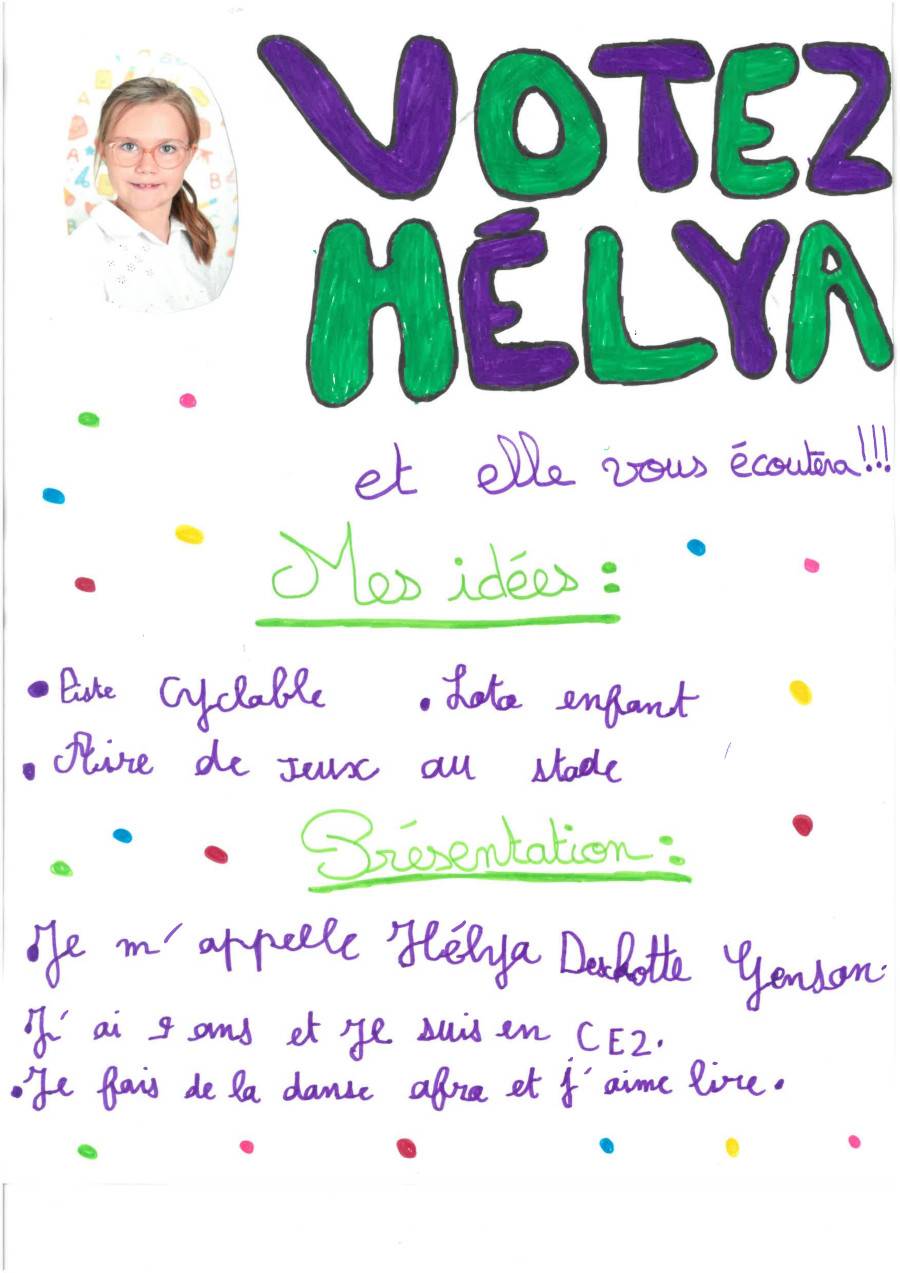 VOTEZ
HÉLYA
et elle vous écoutera!!!
Mes idées :
• Piste Cyclable • Loto enfant
• Aire de jeux au stade
Présentation :
Je m'appelle Hélya Deschotte Genson.
J'ai 9 ans et je suis en CE2.
• Je fais de la danse afro et j'aime lire.